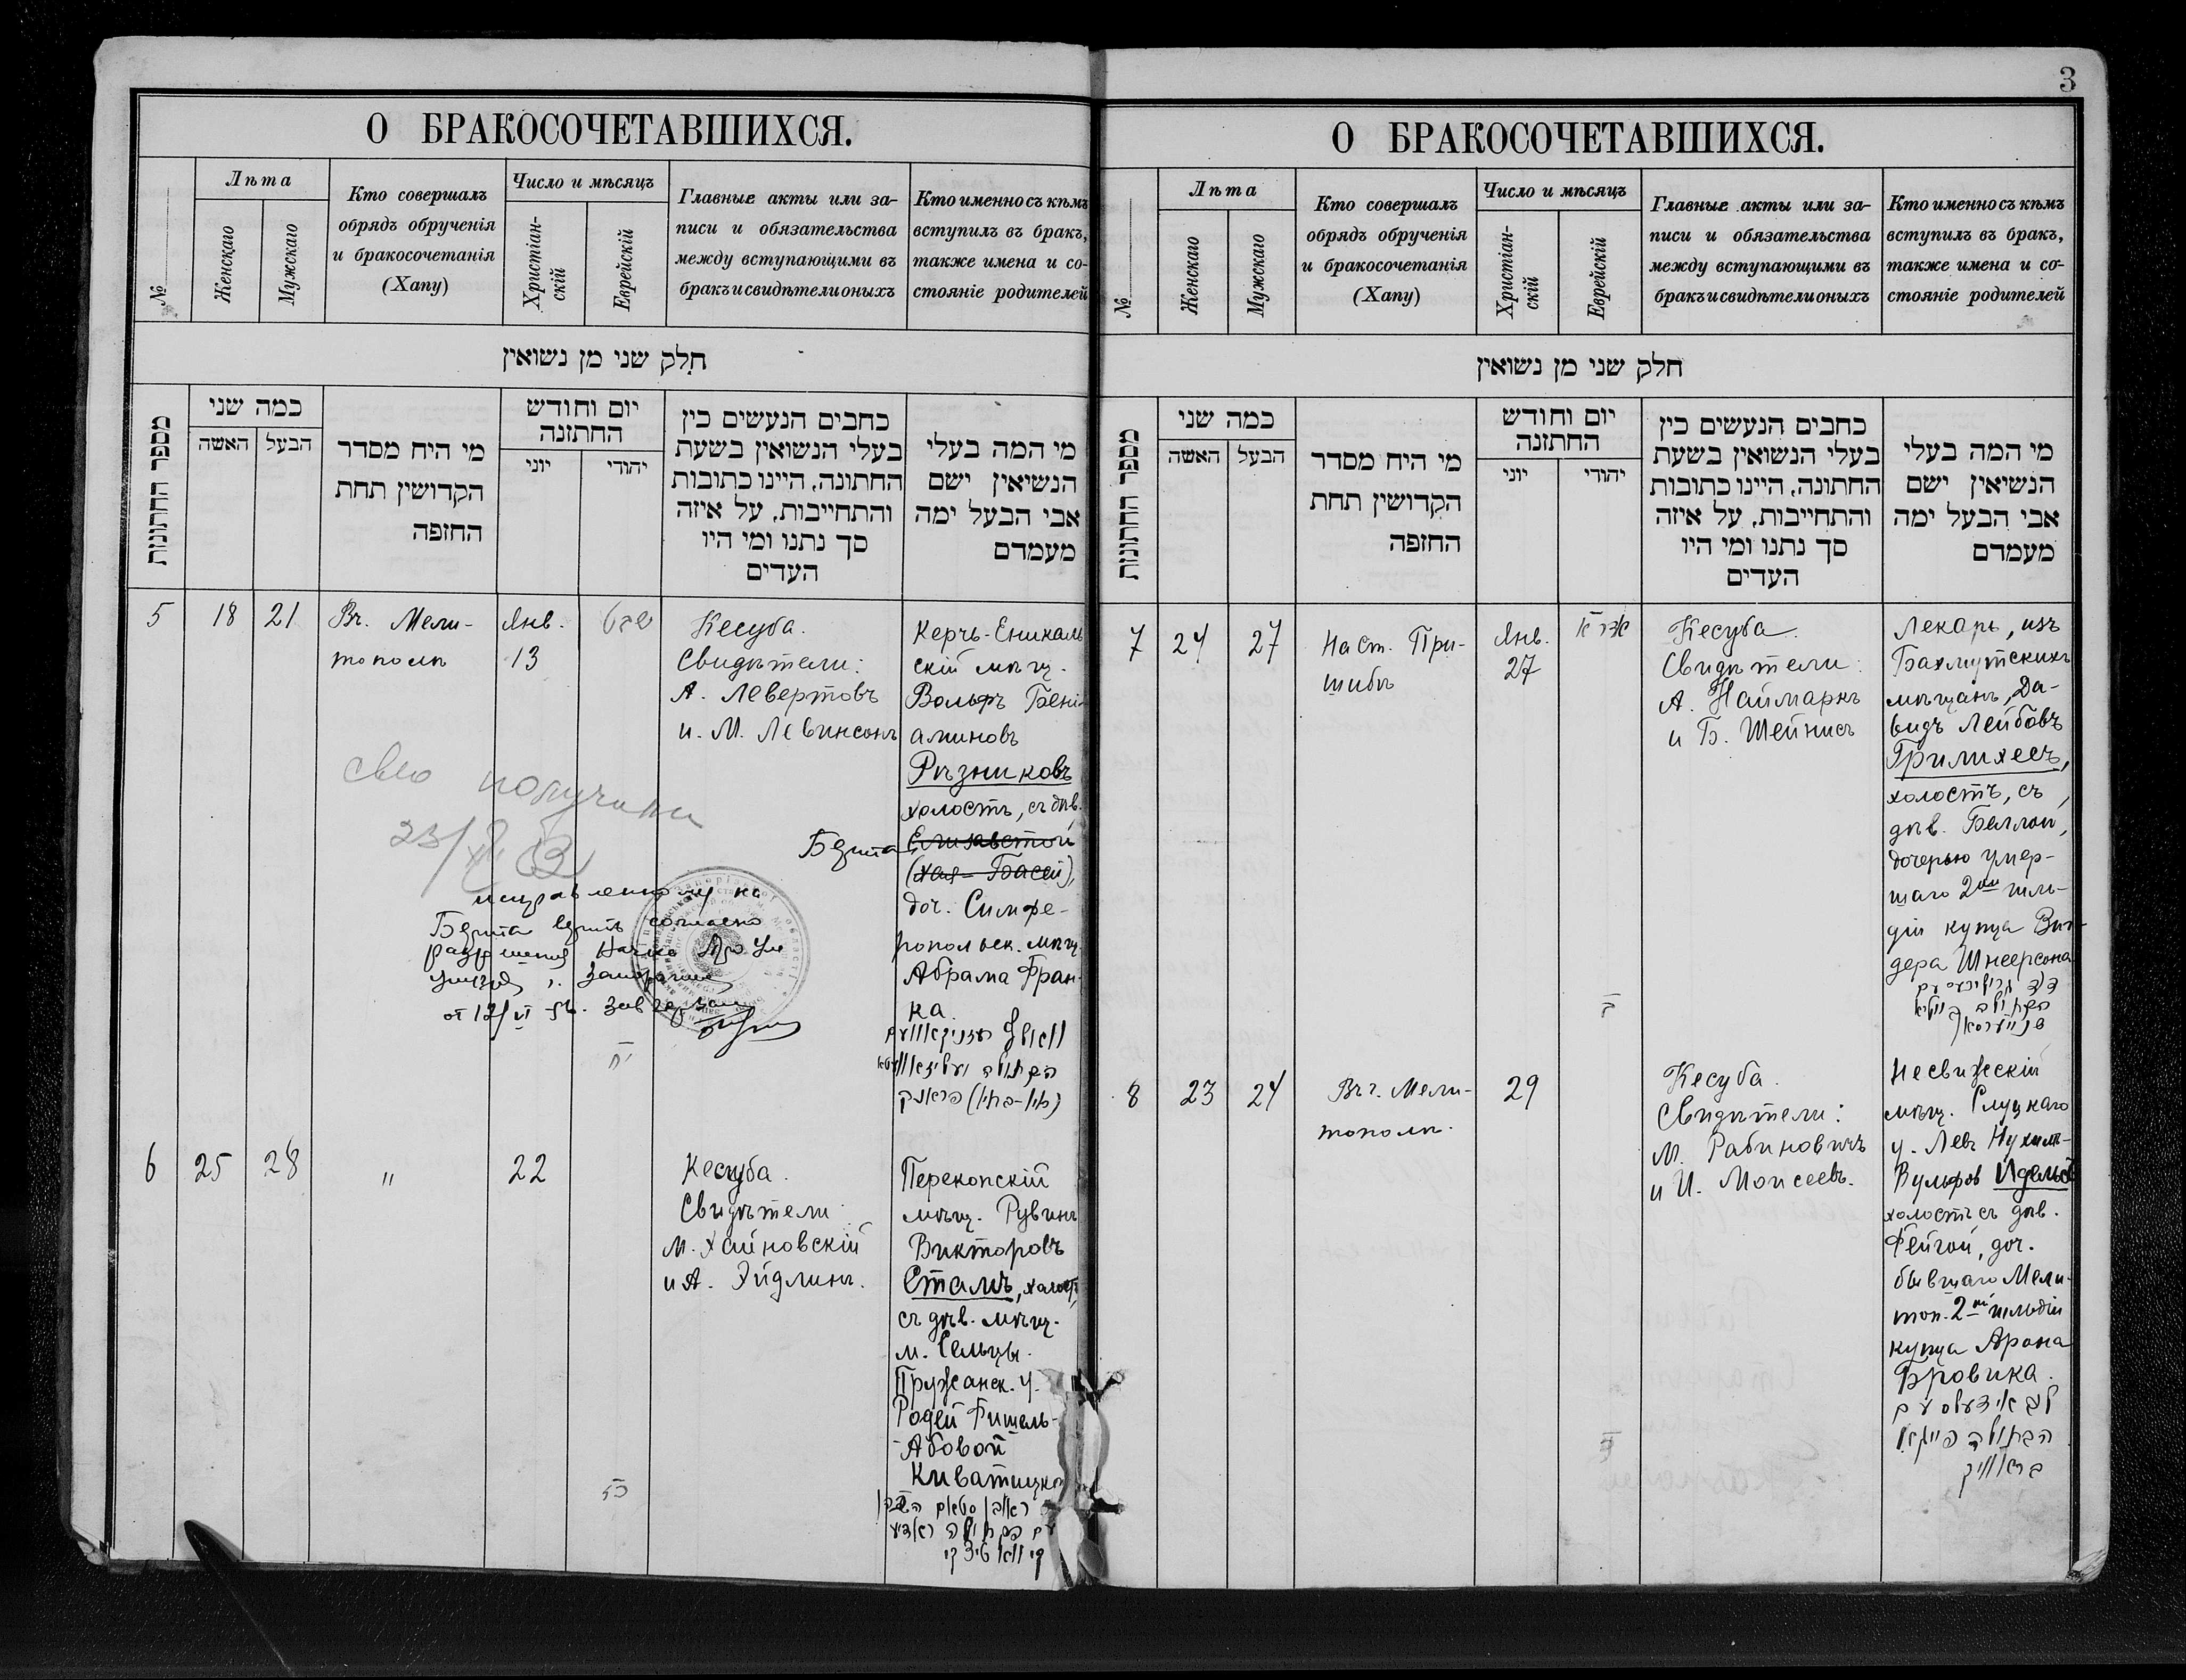 О БРАКОСОЧЕТАВШИХСЯ.
№
Лѣта
Женскаго
Мужскаго
Кто совершалъ
обрядъ обрученія
и бракосочетанія
(Хапу)
Число и мѣсяцъ
Христіан-
скій
Еврейскій
Главные акты или за-
писи и обязательства
между вступающими въ
бракъ и свидѣтели оныхъ
Кто именно съ кѣмъ
вступилъ въ бракъ,
также имена и со-
стояніе родителей
חלק שני מן נשואין
מספר החתונות
כמה שני
האשה
הבעל
מי היח מסדר
הקדושין תחת
החזפה
יום וחודש
החתזנה
יוני
יהודי
כחבים הנעשים כין
בעלי הנשואין בשעת
החתונה, היינו כתובות
והתחייבות, על איזה
סך נתנו ומי היו
העדים
מי המה בעלי
הנשיאין ישם
אבי הבעל ימה
מעמדם
5
18
21
Въ Мели-
тополѣ
Янв.
13
Кесуба.
Свидѣтели:
А. Левертовъ
и М. Левинсонъ
Керчь-Еникаль
скій мѣщ.
Вольфъ Бені-
аминовъ
Рѣзниковъ
холостъ, съ дѣв.
Берта Елисаветой
(Хая-Басей),
доч. Симфе-
ропольск. мѣщ.
Абрама Фран-
ка.
св-во получила
исправленному на
Берта верить согласно
יח
6
25
28
"
22
Кесуба.
Свидѣтели
М. Хайновскій
и А. Эйдлинъ.
Перекопскій
мѣщ. Рувинъ
Викторовъ
Сталъ, холостъ,
съ дѣв. мѣщ.
м. Сельцы
Пружанск. у.
Родей Фишель-
Абовой
Киватицкой
3
О БРАКОСОЧЕТАВШИХСЯ.
№
Лѣта
Женскаго
Мужскаго
Кто совершалъ
обрядъ обрученія
и бракосочетанія
(Хапу)
Число и мѣсяцъ
Христіан-
скій
Еврейскій
Главные акты или за-
писи и обязательства
между вступающими въ
бракъ и свидѣтели оныхъ
Кто именно съ кѣмъ
вступилъ въ бракъ,
также имена и со-
стояніе родителей
חלק שני מן נשואין
מספר החתונות
כמה שני
האשה
הבעל
מי היח מסדר
הקדושין תחת
החזפה
יום וחודש
החתזנה
יוני
יהודי
כחבים הנעשים כין
בעלי הנשואין בשעת
החתונה, היינו כתובות
והתחייבות, על איזה
סך נתנו ומי היו
העדים
מי המה בעלי
הנשיאין ישם
אבי הבעל ימה
מעמדם
7
24
27
На ст. При-
шибъ
Янв.
27
Кесуба.
Свидѣтели:
А. Наймаркъ
и Б. Шейнисъ
Лекарь, изъ
Бахмутскихъ
мѣщанъ, Да-
видъ Лейбовъ
Грилихесъ,
холостъ, съ
дѣв. Беллой,
дочерью умер-
шаго 2ой гиль-
діи купца
Шнеерсона
8
23
24
Въ г. Мели-
тополѣ.
29
Кесуба.
Свидѣтели:
М. Рабиновичъ
и И. Моисеевъ.
Несвижскій
мѣщ. Слуцкаго
у. Левъ Нухимъ-
Вульфовъ
холостъ съ дѣв.
Фейгой, доч.
бывшаго Мели-
топ. 2ой гильдіи
купца Арона
Бровика.
הבתולה פייגא
בראוויק